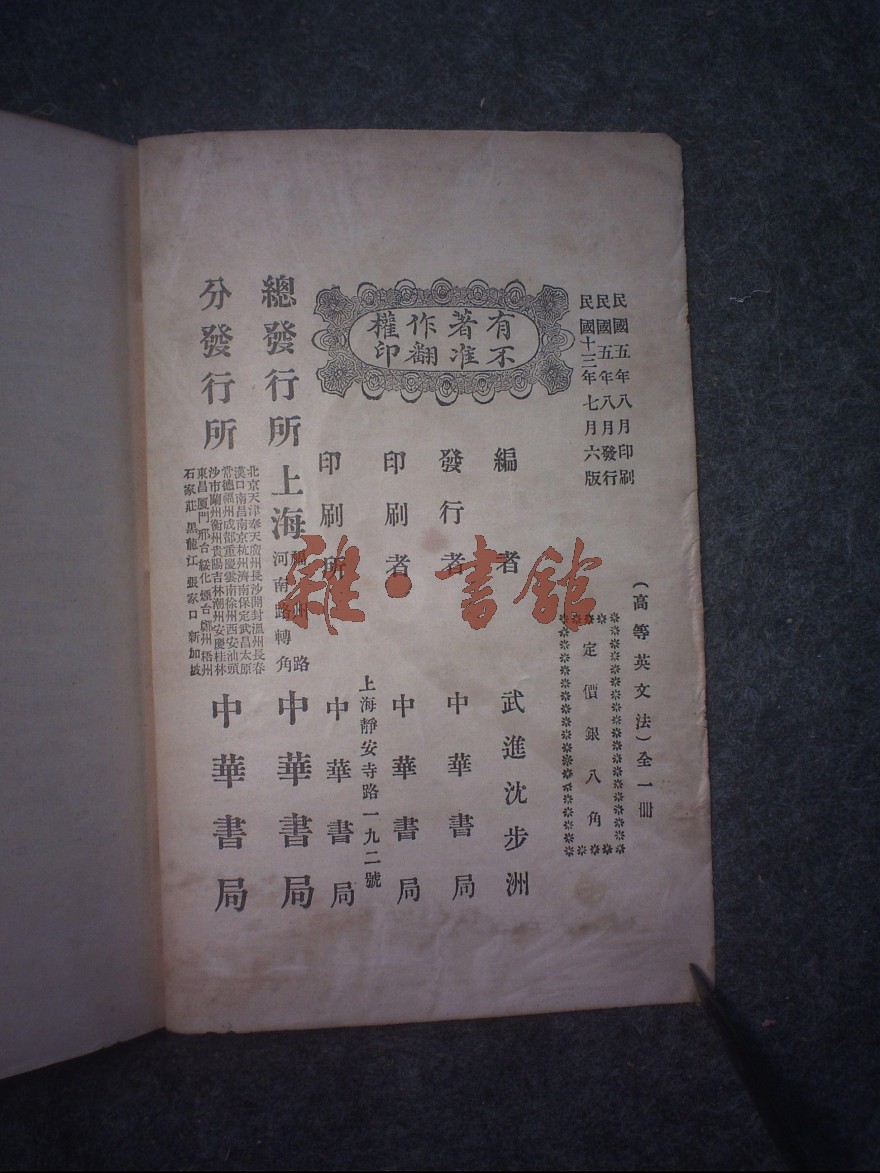 民國五年八月印刷
民國五年八月發行
民國十三年七月六版
(高等英文法)全一冊
定價銀八角
有著作權
不准翻印
編者 武進沈步洲
發行者 中華書局
印刷者 中華書局
上海靜安寺路一九二號
印刷所 中華書局
總發行所 上海福州路河南路轉角 中華書局
分發行所
北京天津奉天廣州長沙開封溫州長春
漢口南昌南京杭州濟南保定武昌太原
常德福州成都重慶雲南徐州西安汕頭
沙市蘭州衡州貴陽吉林潮州安慶桂林
東昌廈門邢台綏化煙台鄭州梧州
石家莊黑龍江張家口新加坡
中華書局
雜·書館